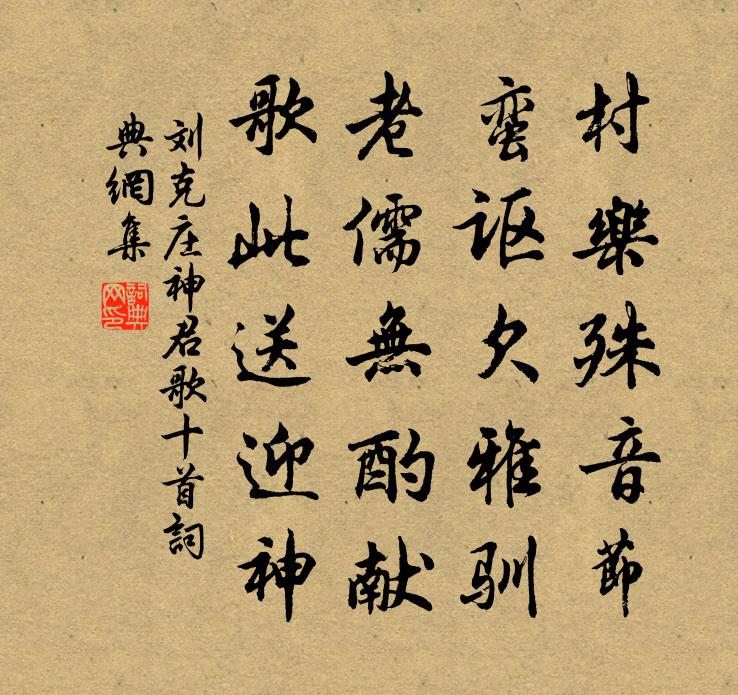 村樂殊音節
蛮讴欠雅驯
老儒無酌献
歌此送迎神
刘克庄神君歌十首詞
典網集
詞典
网印